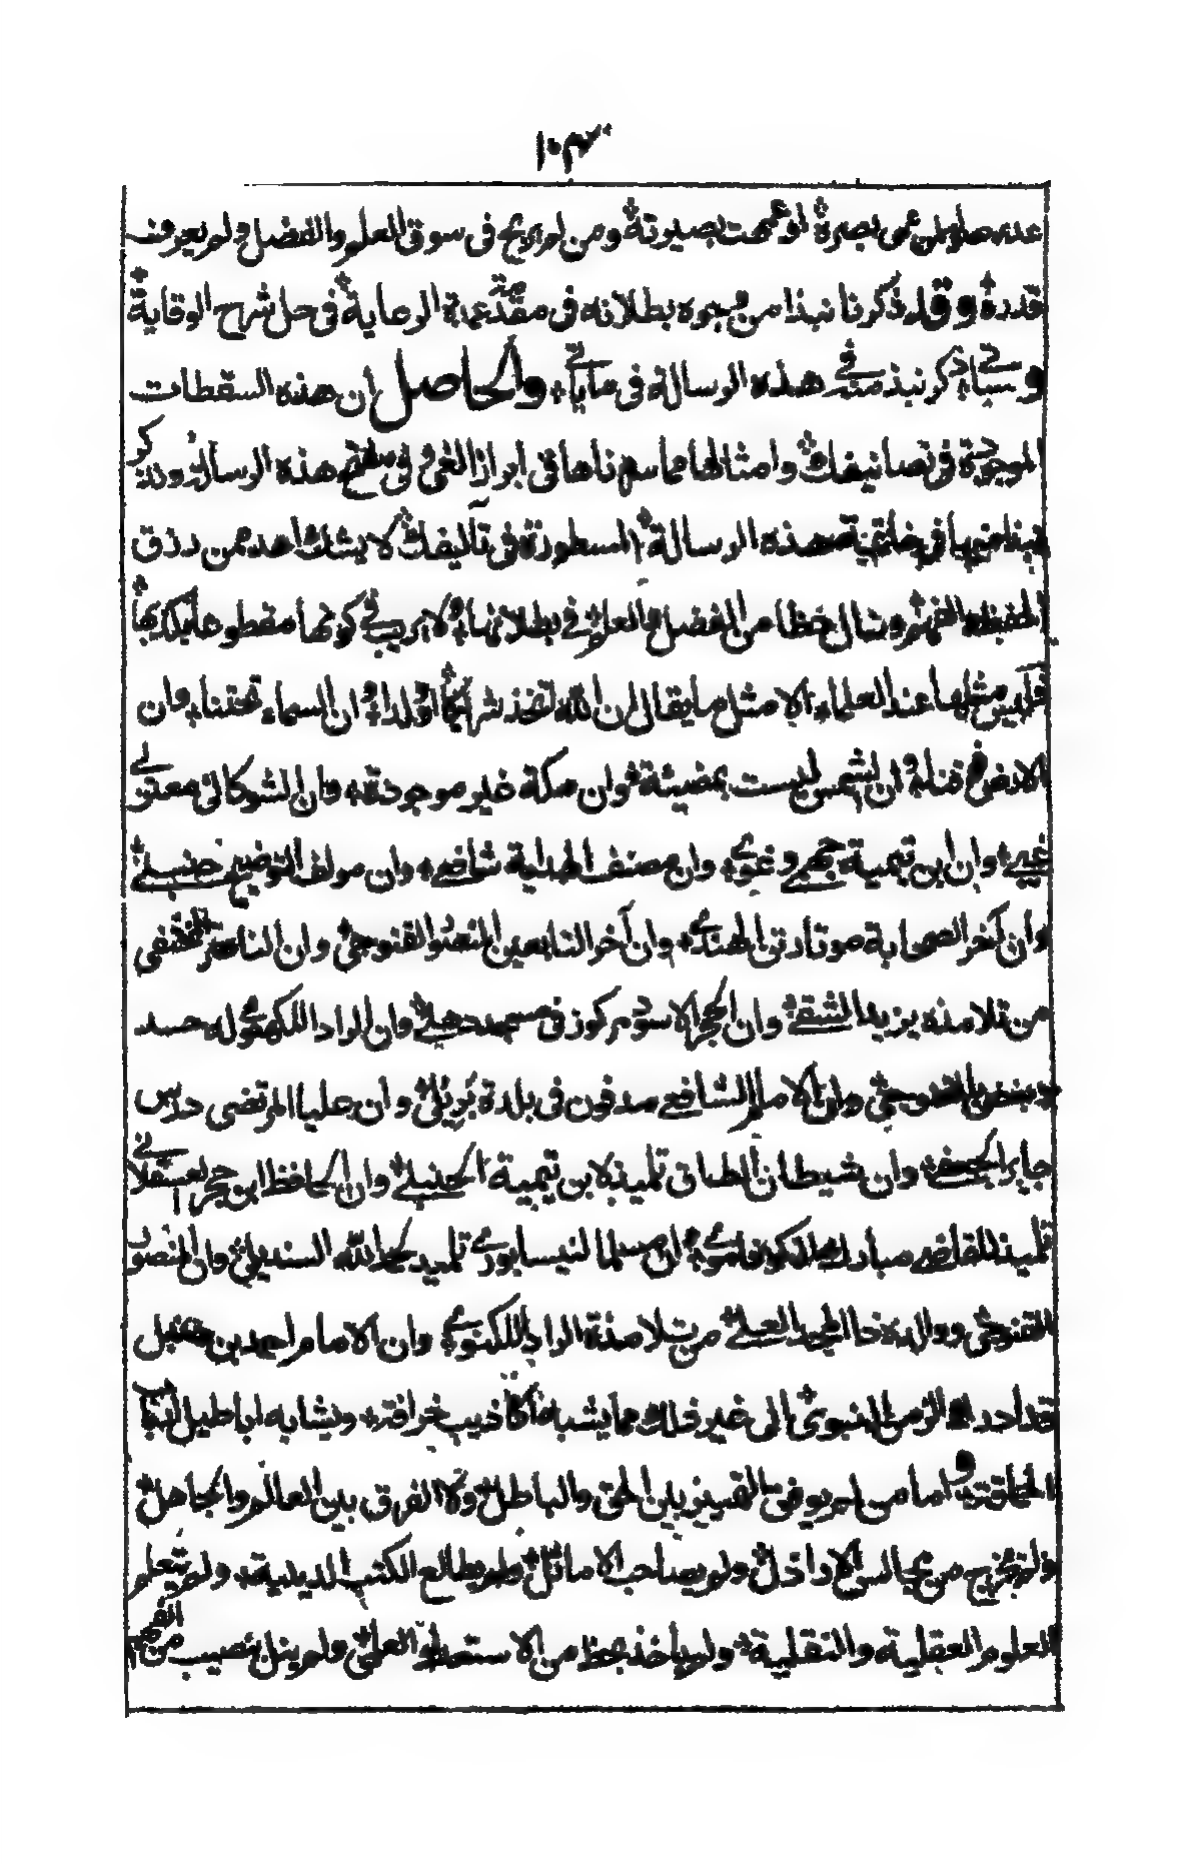 ١٠٣
من عمى بصره او عميت بصيرته ومن لم يربح فى سوق العلم والفضل ولم يعرف
قدره وقد ذكرنا نبذا من وجوه بطلانه فى مقدمة عمدة الرعاية فى حل شرح الوقاية
وسياتى ذكر نبذ منه فى هذه الرسالة فى ما ياتى والحاصل أن هذه السقطات
الموجودة فى تصانيفك وامثالها مما سردناها فى ابراز الغى وفى هذه الرسالة وذكر
منها فى خاتمة هذه الرسالة المسطورة فى تآليفك لا يشك احد ممن رزق
الحفظ والفهم ونال حظا من الفضل والعلم فى بطلانها ولا يريب فى كونها مقطوعا بكذبها
فليس مثلها عند العلماء الا مثل ما يقال ان الله اتخذ شريكا او ولدا وان السماء تحتنا وان
الارض فوقنا وان الشمس ليست بمضيئة وان مكة غير موجودة وان الشوكانى معتزلى
وان ابن تيمية جهمى وغوى وان مصنف الهداية شافعى وان مولف التوضيح حنبلى
وأن آخر الصحابة موتا رتن الهندى وان آخر التابعين القنوجى وان الناصر المختفى
من تلامذه يزيد الشقى وان الحجر الاسود مركوز فى مسجد دهلى وان الراد اللكهنوى له حسد
وان الامام الشافعى مدفون فى بلدة بريلى وأن عليا المرتضى
جابر الجعفى وأن شيطان الطاق تلميذ لابن تيمية الحنبلى وان الحافظ ابن حجر العسقلانى
تلميذ للقاضى مبارك وان مسلما النيسابورى تلميذ لحمد الله السنديلى وان المنصور
القنوجى ووالده من تلامذة الراد اللكنوى وان الامام احمد بن حنبل
قد ادرك الزمن النبوى الى غير ذلك مما يشبه أكاذيب خرافة ويشابه اباطيل
واما من لم يوفق التمييز بين الحق والباطل ولا الفرق بين العالم والجاهل
ولم يخرج من مجالس الاراذل ولم يصاحب الاماثل ولم يطالع الكتب الدينية ولم يتعلم
العلوم العقلية والنقلية ولم ياخذ بحظ من الاستعداد العلمى ولم ينل بنصيب من الفهم